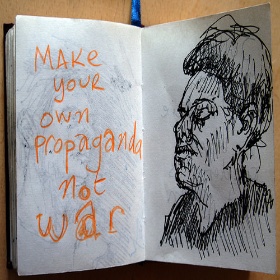 MAKE
your
own
propaganda
not
war